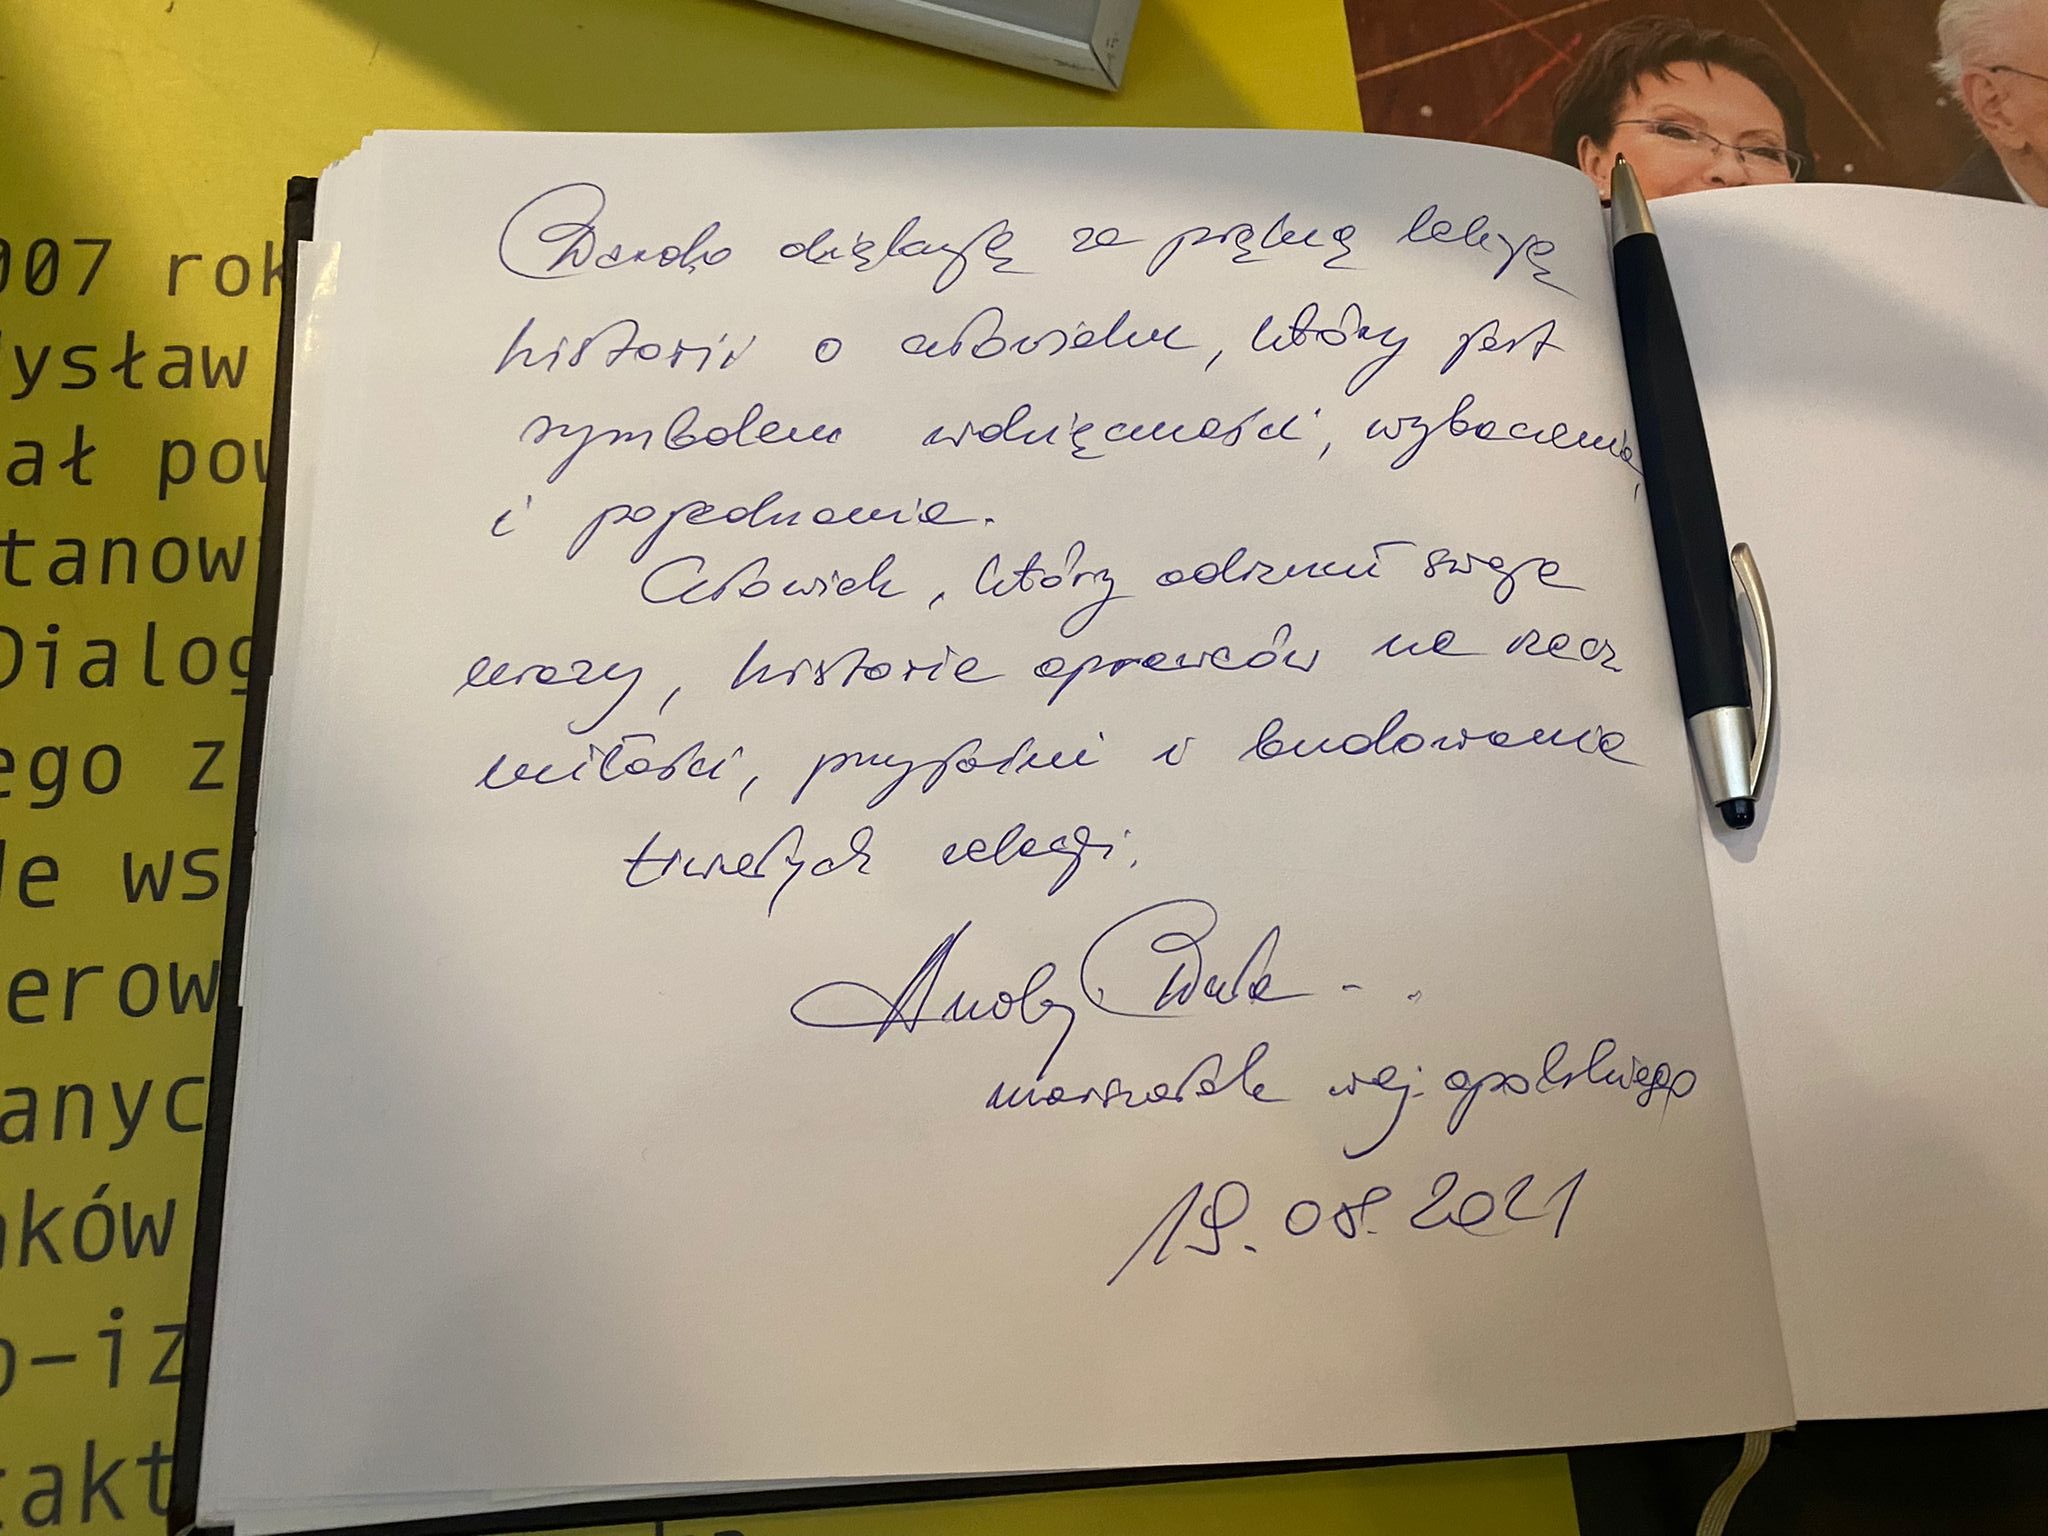 Bardzo dziękuję za piękną lekcję
historii o człowieku, który jest
symbolem wdzięczności, wybaczenia,
i pojednania.
Człowiek, który odrzucił swoje
urazy, historie oprawców na rzecz
miłości, przyjaźni i budowania
trwałych relacji.
Andrzej Buła
marszałek woj. opolskiego
19.08.2021
007 rok
ysław
ał pow
tanow
Dialog
ego z
de ws
erow
anyc
ków
o-iz
takt